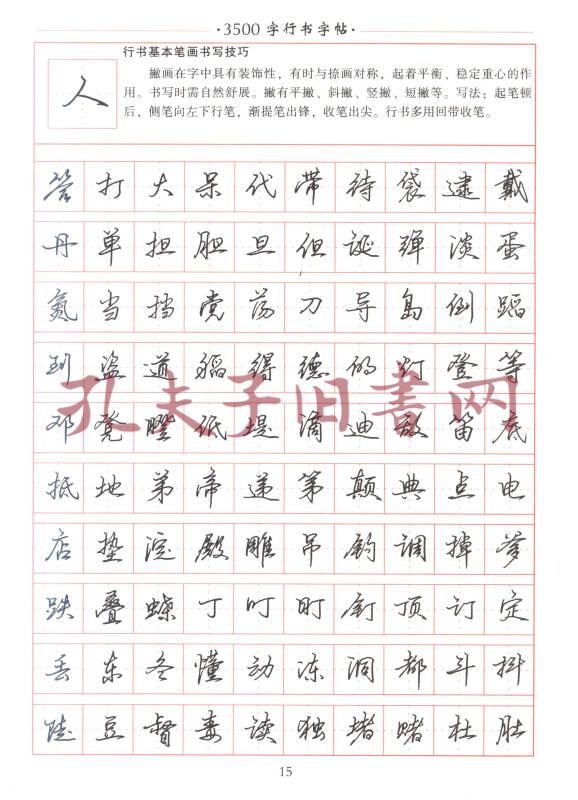 ·3500字行书字帖·
行书基本笔画书写技巧
人
撇画在字中具有装饰性，有时与捺画对称，起着平衡、稳定重心的作
用。书写时需自然舒展。撇有平撇、斜撇、竖撇、短撇等。写法：起笔顿
后，侧笔向左下行笔，渐提笔出锋，收笔出尖。行书多用回带收笔。
答 打 大 呆 代 带 待 袋 逮 戴
丹 单 担 胆 旦 但 诞 弹 淡 蛋
氮 当 挡 党 荡 刀 导 岛 倒 蹈
到 盗 道 稻 得 德 的 灯 登 等
孔夫子旧书网
邓 凳 瞪 低 堤 滴 迪 敌 笛 底
抵 地 弟 帝 递 第 颠 典 点 电
店 垫 淀 殿 雕 吊 钓 调 掉 爹
跌 叠 蝶 丁 叮 盯 钉 顶 订 定
丢 东 冬 懂 动 冻 洞 都 斗 抖
陡 豆 督 毒 读 独 堵 赌 杜 肚
15